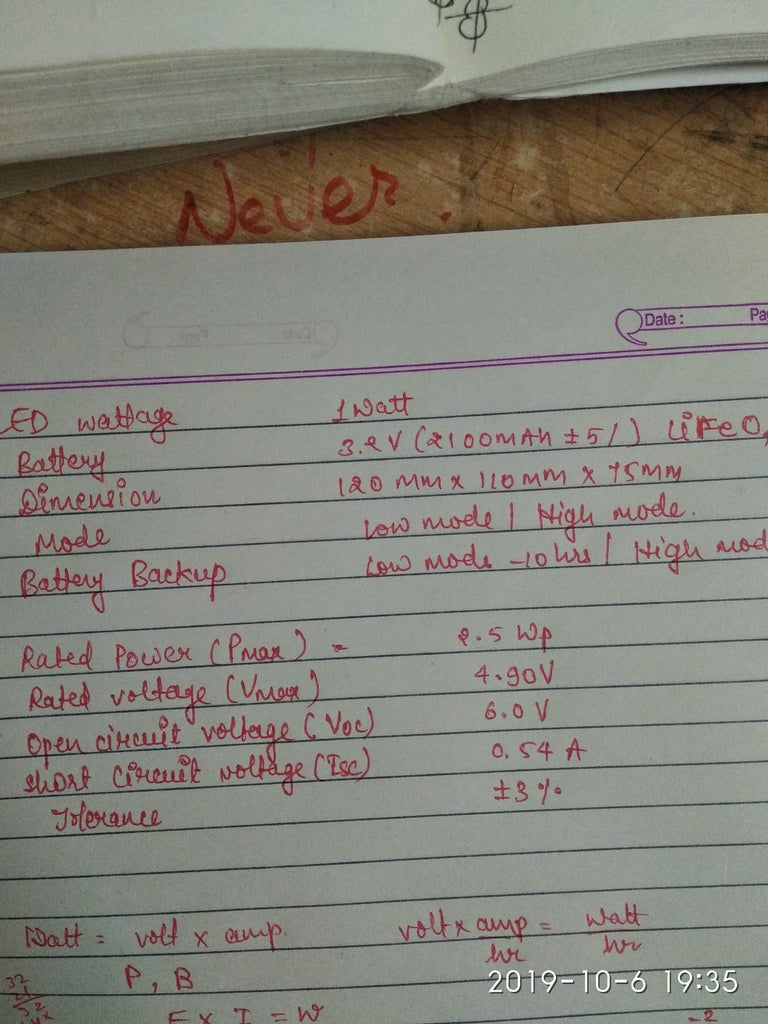 Never.
Date : Pa
ED wattage 1 Watt
Battery 3.2V (2100mAh ±5%) LiFeO
Dimension 120 mm x 110 mm x 75mm
Mode Low mode / High mode.
Battery Backup Low mode -10 hrs / High mod
Rated Power (Pmax) - 2.5 Wp
Rated voltage (Vmax) 4.90V
Open circuit voltage (Voc) 6.0 V
Short circuit voltage (Isc) 0.54 A
Tolerance ±3%
Watt = volt x amp. volt x amp / hr = watt / hr
P, B
2019-10-6 19:35
E x I = W
-2